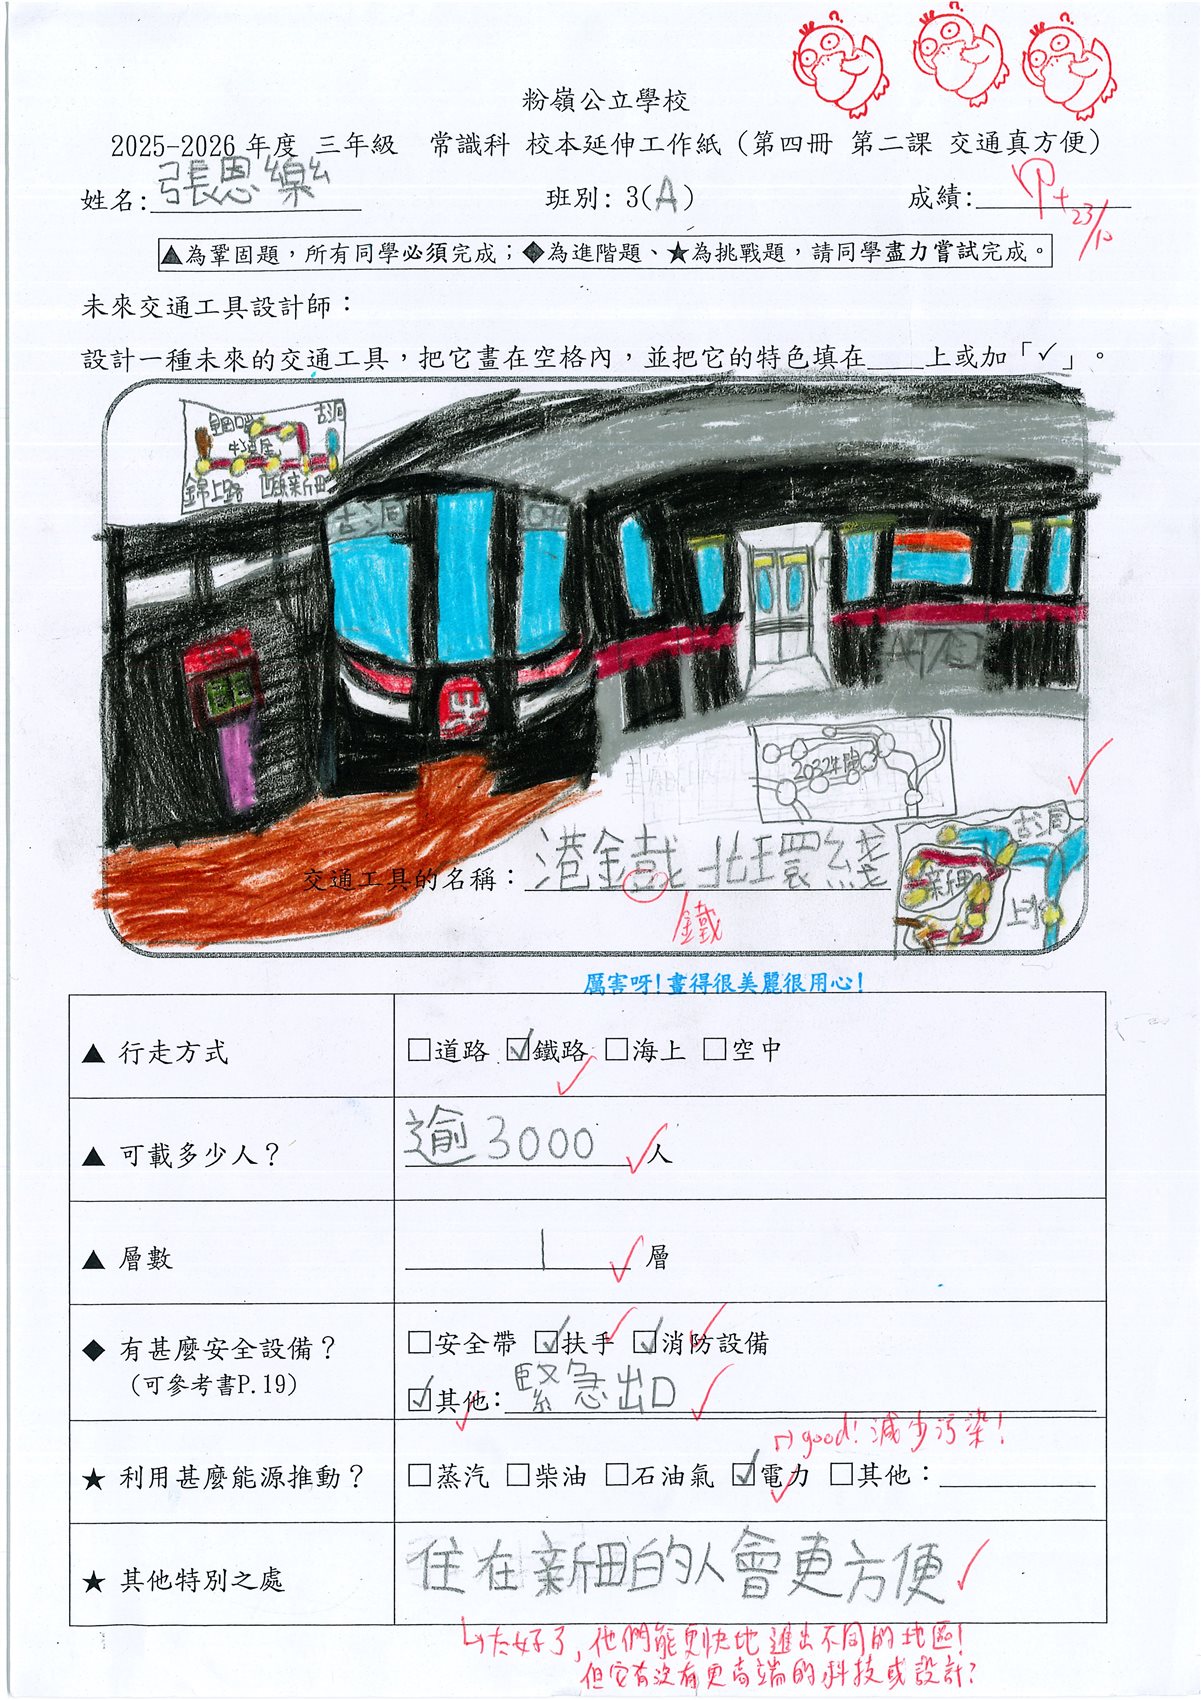 粉嶺公立學校
2025-2026 年度 三年級 常識科 校本延伸工作紙（第四冊 第二課 交通真方便）
姓名: 張恩樂 班別: 3(A) 成績: 甲+ 23/10
▲為鞏固題，所有同學必須完成；◆為進階題、★為挑戰題，請同學盡力嘗試完成。
未來交通工具設計師：
設計一種未來的交通工具，把它畫在空格內，並把它的特色填在____上或加「✓」。
古洞
牛潭尾
錦上路 新田
古洞
2032年
古洞
新田
上水
交通工具的名稱： 港鐵北環綫
鐵
厲害呀！畫得很美麗很用心！
▲ 行走方式 □道路 ☑鐵路 □海上 □空中
▲ 可載多少人？ 逾3000 人
▲ 層數 1 層
◆ 有甚麼安全設備？ □安全帶 ☑扶手 ☑消防設備
(可參考書P.19) ☑其他: 緊急出口
good! 減少污染！
★ 利用甚麼能源推動？ □蒸汽 □柴油 □石油氣 ☑電力 □其他：
★ 其他特別之處 住在新田的人會更方便
太好了，他們能更快地進出不同的地區！
但它有沒有更高端的科技或設計？